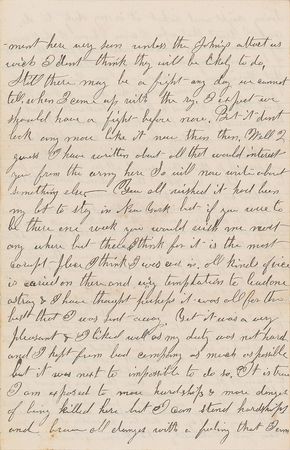 ment here very soon unless the Johnys attact us
wich I dont think they will be likely to do,
Still there may be a fight any day we cannot
tell. when I came up with the I expect we
should have a fight before now, But it dont
look any more like it now then then, Well I
guess I have written about all that would interest
you from the army here So will now write about
something else. You all wished it had been
my lot to stay in New York but if you were to
be there one week you would wish me most
any where but there I think for it is the most
corupt place I think I was ever in, all kinds of vice
is caried on there and evry temptation to lead one
astray & I have thought perhaps it was all for the
best that I was sent away. Yet it was a very
pleasant & I liked well as my duty was not hard
and I kept from bad company as much as posible
but it was next to imposible to do so. It is true
I am exposed to more hardships & more danger
of being killed here but I can stand hardships
and brave all danger with a feeling that I am